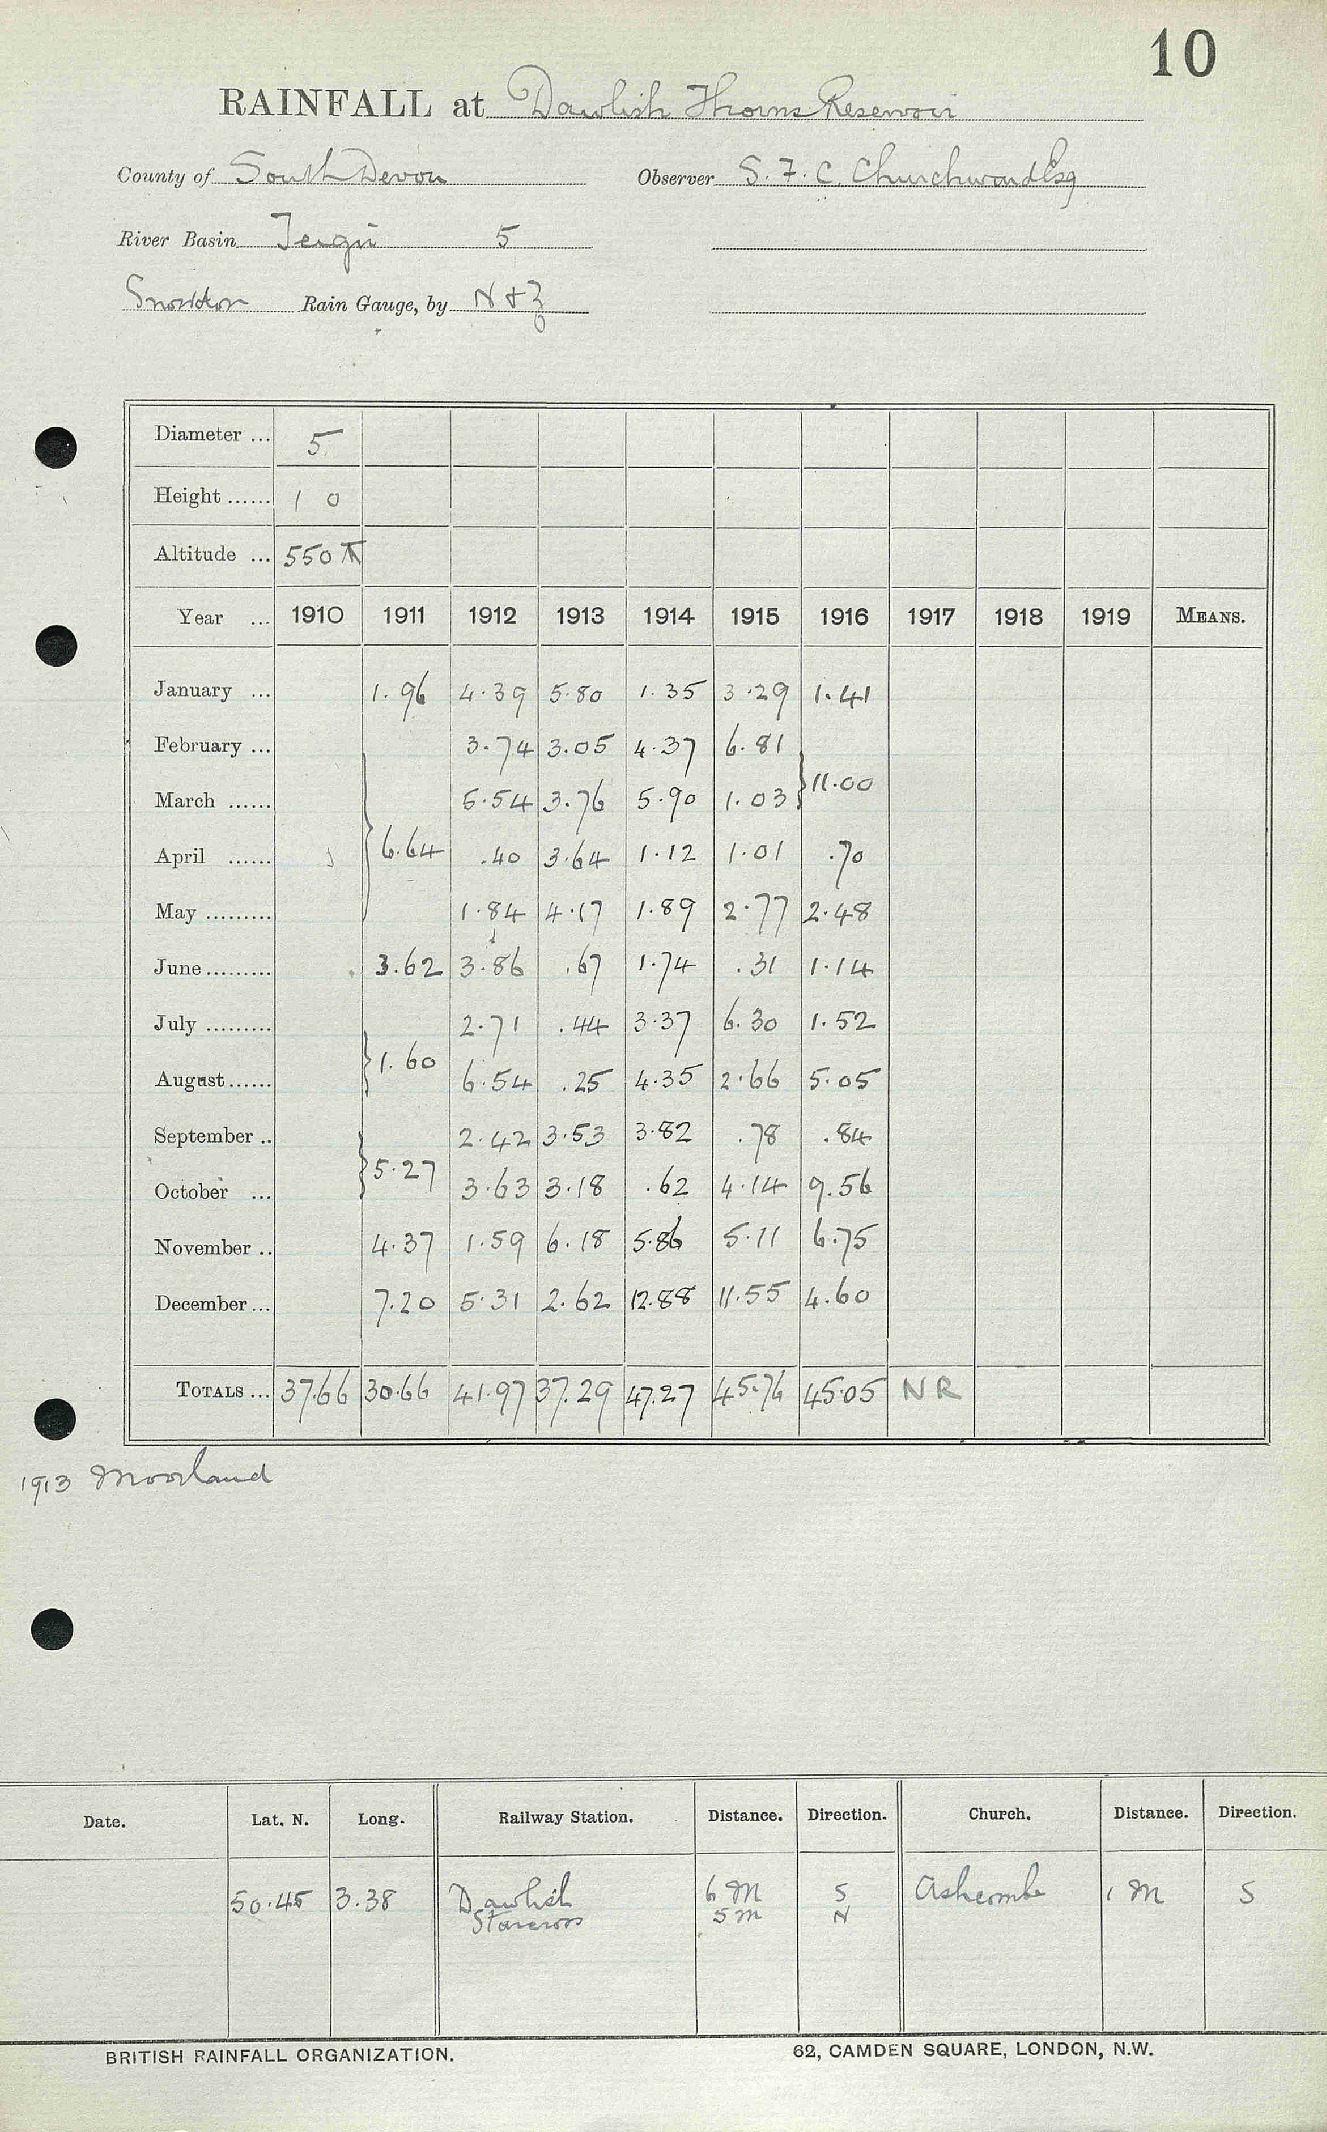 10
RAINFALL at Dawlish Thorns Reservoir
County of South Devon Observer S. F. C. Churchward Esq
River Basin Teign 5
Snowdon Rain Gauge, by N & Z
Diameter ... 5
Height ...... 1 0
Altitude ... 550
Year ... 1910 1911 1912 1913 1914 1915 1916 1917 1918 1919 MEANS.
January ... 1.96 4.39 5.80 1.35 3.29 1.41
February ... 3.74 3.05 4.37 6.81
} 11.00
March ...... 5.54 3.76 5.90 1.03
April ...... } 6.64 .40 3.64 1.12 1.01 .70
May ......... 1.84 4.17 1.89 2.77 2.48
June ......... 3.62 3.86 .67 1.74 .31 1.14
July ......... 2.71 .44 3.37 6.30 1.52
} 1.60
August ...... 6.54 .25 4.35 2.66 5.05
September .. 2.42 3.53 3.82 .78 .84
} 5.27
October ... 3.63 3.18 .62 4.14 9.56
November .. 4.37 1.59 6.18 5.86 5.11 6.75
December ... 7.20 5.31 2.62 12.88 11.55 4.60
TOTALS ... 37.66 30.66 41.97 37.29 47.27 45.76 45.05 NR
1913 Moorland
Date. Lat. N. Long. Railway Station. Distance. Direction. Church. Distance. Direction.
50.45 3.38 Dawlish 6 M S Ashcombe 1 M S
Starcross 5 m N
BRITISH RAINFALL ORGANIZATION. 62, CAMDEN SQUARE, LONDON, N.W.